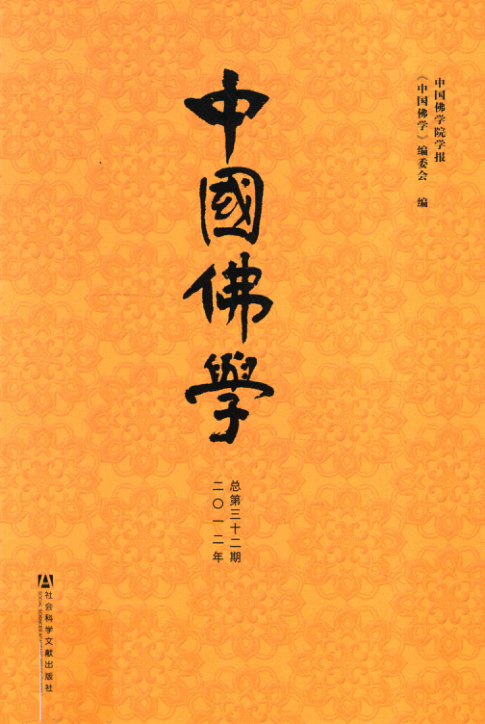 中国佛学院学报
《中国佛学》编委会 编
中國佛學
总第三十二期
二〇一二年
社会科学文献出版社